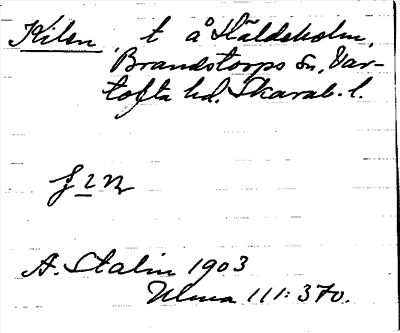 Kilen, t å Häldeholm,
Brandstorps sn, Var-
tofta hd. Skarab. l.
A. Stalin 1903
Ulma 111:370.